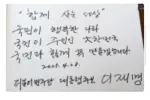 "함께 사는 세상"
국민이 행복한 나라
국민이 주인인 大한민국
국민과 함께 꼭 만들겠습니다
더불어민주당 대통령후보 이재명